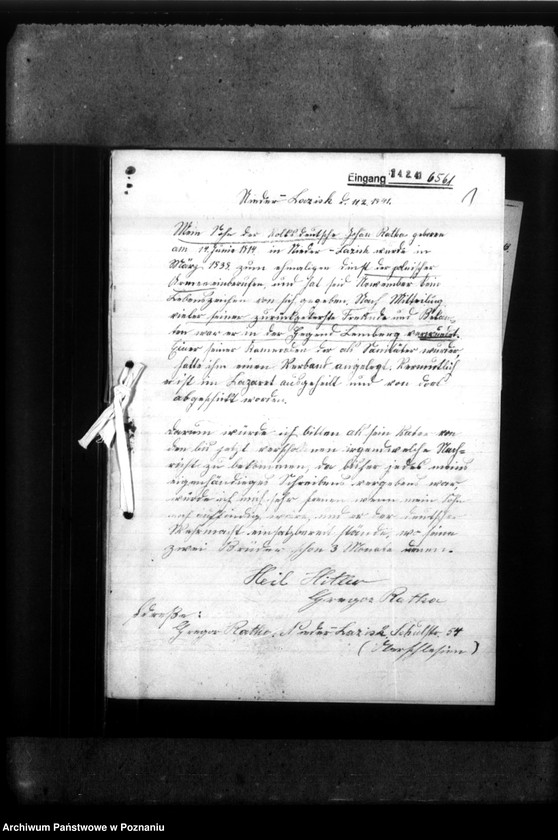 Eingang 14.2.41 6561
Nieder-Lazisk d. 11.2.1941.
Mein Sohn der Volksdeutsche Johan Ratka geboren
am 19. Junie 1914 in Nieder-Lazisk wurde in
März 1939 zum ehmaligen dienst der polnischer
Armee einberufen, und hat seid November kein
Lebenszeichen von sich gegeben. Nach Mitteilung
vieler seiner zurückgekerhrte Freunde und Bekan-
ten war er in der Gegend Lemberg verwundet.
Einer seiner Kameraden der als Sanitäter wurde
hatte ihn einen Verband angelegt. Vermutlich
ist im Lazaret ausgeheilt und von dort
abgeschikt worden.
Darum würde ich bitten als sein Vater von
den bis jetzt verschollenen irgendwelche Nach-
richt zu bekommen, da bisher jedes meine
eigenhändiges Schreibens vergebens war,
würde ich mich sehr freuen wenn mein Sohn
noch ausfindig wäre, und er der deutsche
Wehrmacht einsatzbereit stände, wo seine
zwei Brüder schon 3 Monate
Heil Hitler
Gregor Ratka
Adreße:
Gregor Ratka, Nieder-Lazisk Schulstr. 54
(Oberschlesien)
Archiwum Państwowe w Poznaniu